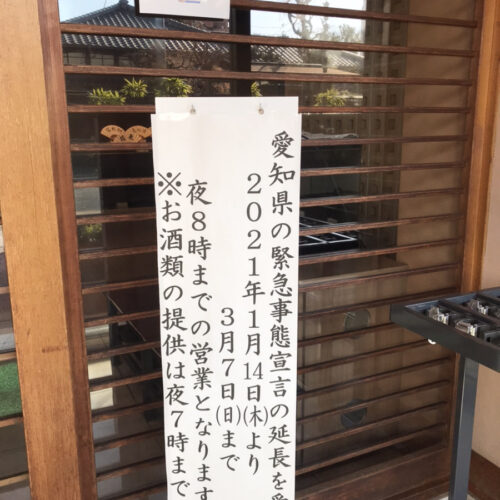 愛知県の緊急事態宣言の延長を
2021年1月14日(木)より
3月7日(日)まで
夜8時までの営業となります
※お酒類の提供は夜7時まで